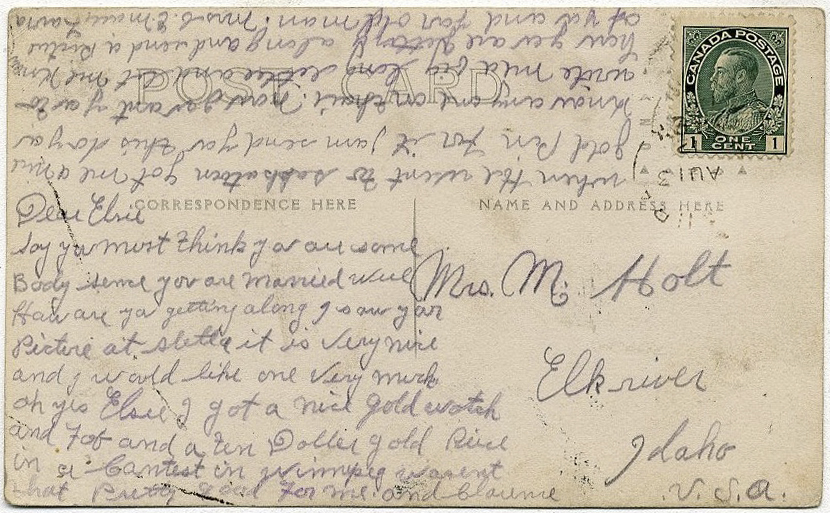 POST CARD
CANADA POSTAGE
1 ONE CENT 1
AU 13
CORRESPONDENCE HERE
NAME AND ADDRESS HERE
Dear Elsie
Say you must think you are some
Body sence you are Married well
How are ya getting along I saw your
Picture at Stella it is very nice
and I would like one very much
oh yes Elsie I got a nice gold watch
and Fob and a ten Doller gold Piece
in a Contest in Winnipeg wasent
that Pretty good For me and Clarence
when He went to Saskatoon got me a nice
gold Pen For it I am send ya this so ya
know any one on that. now I want ya to
write me a big long letter and let me know
how you are getting along and send a Pictur
of ya and Far old man. Mrs. C. E
Mrs. M. Holt
Elkriver
Idaho
U.S.A.